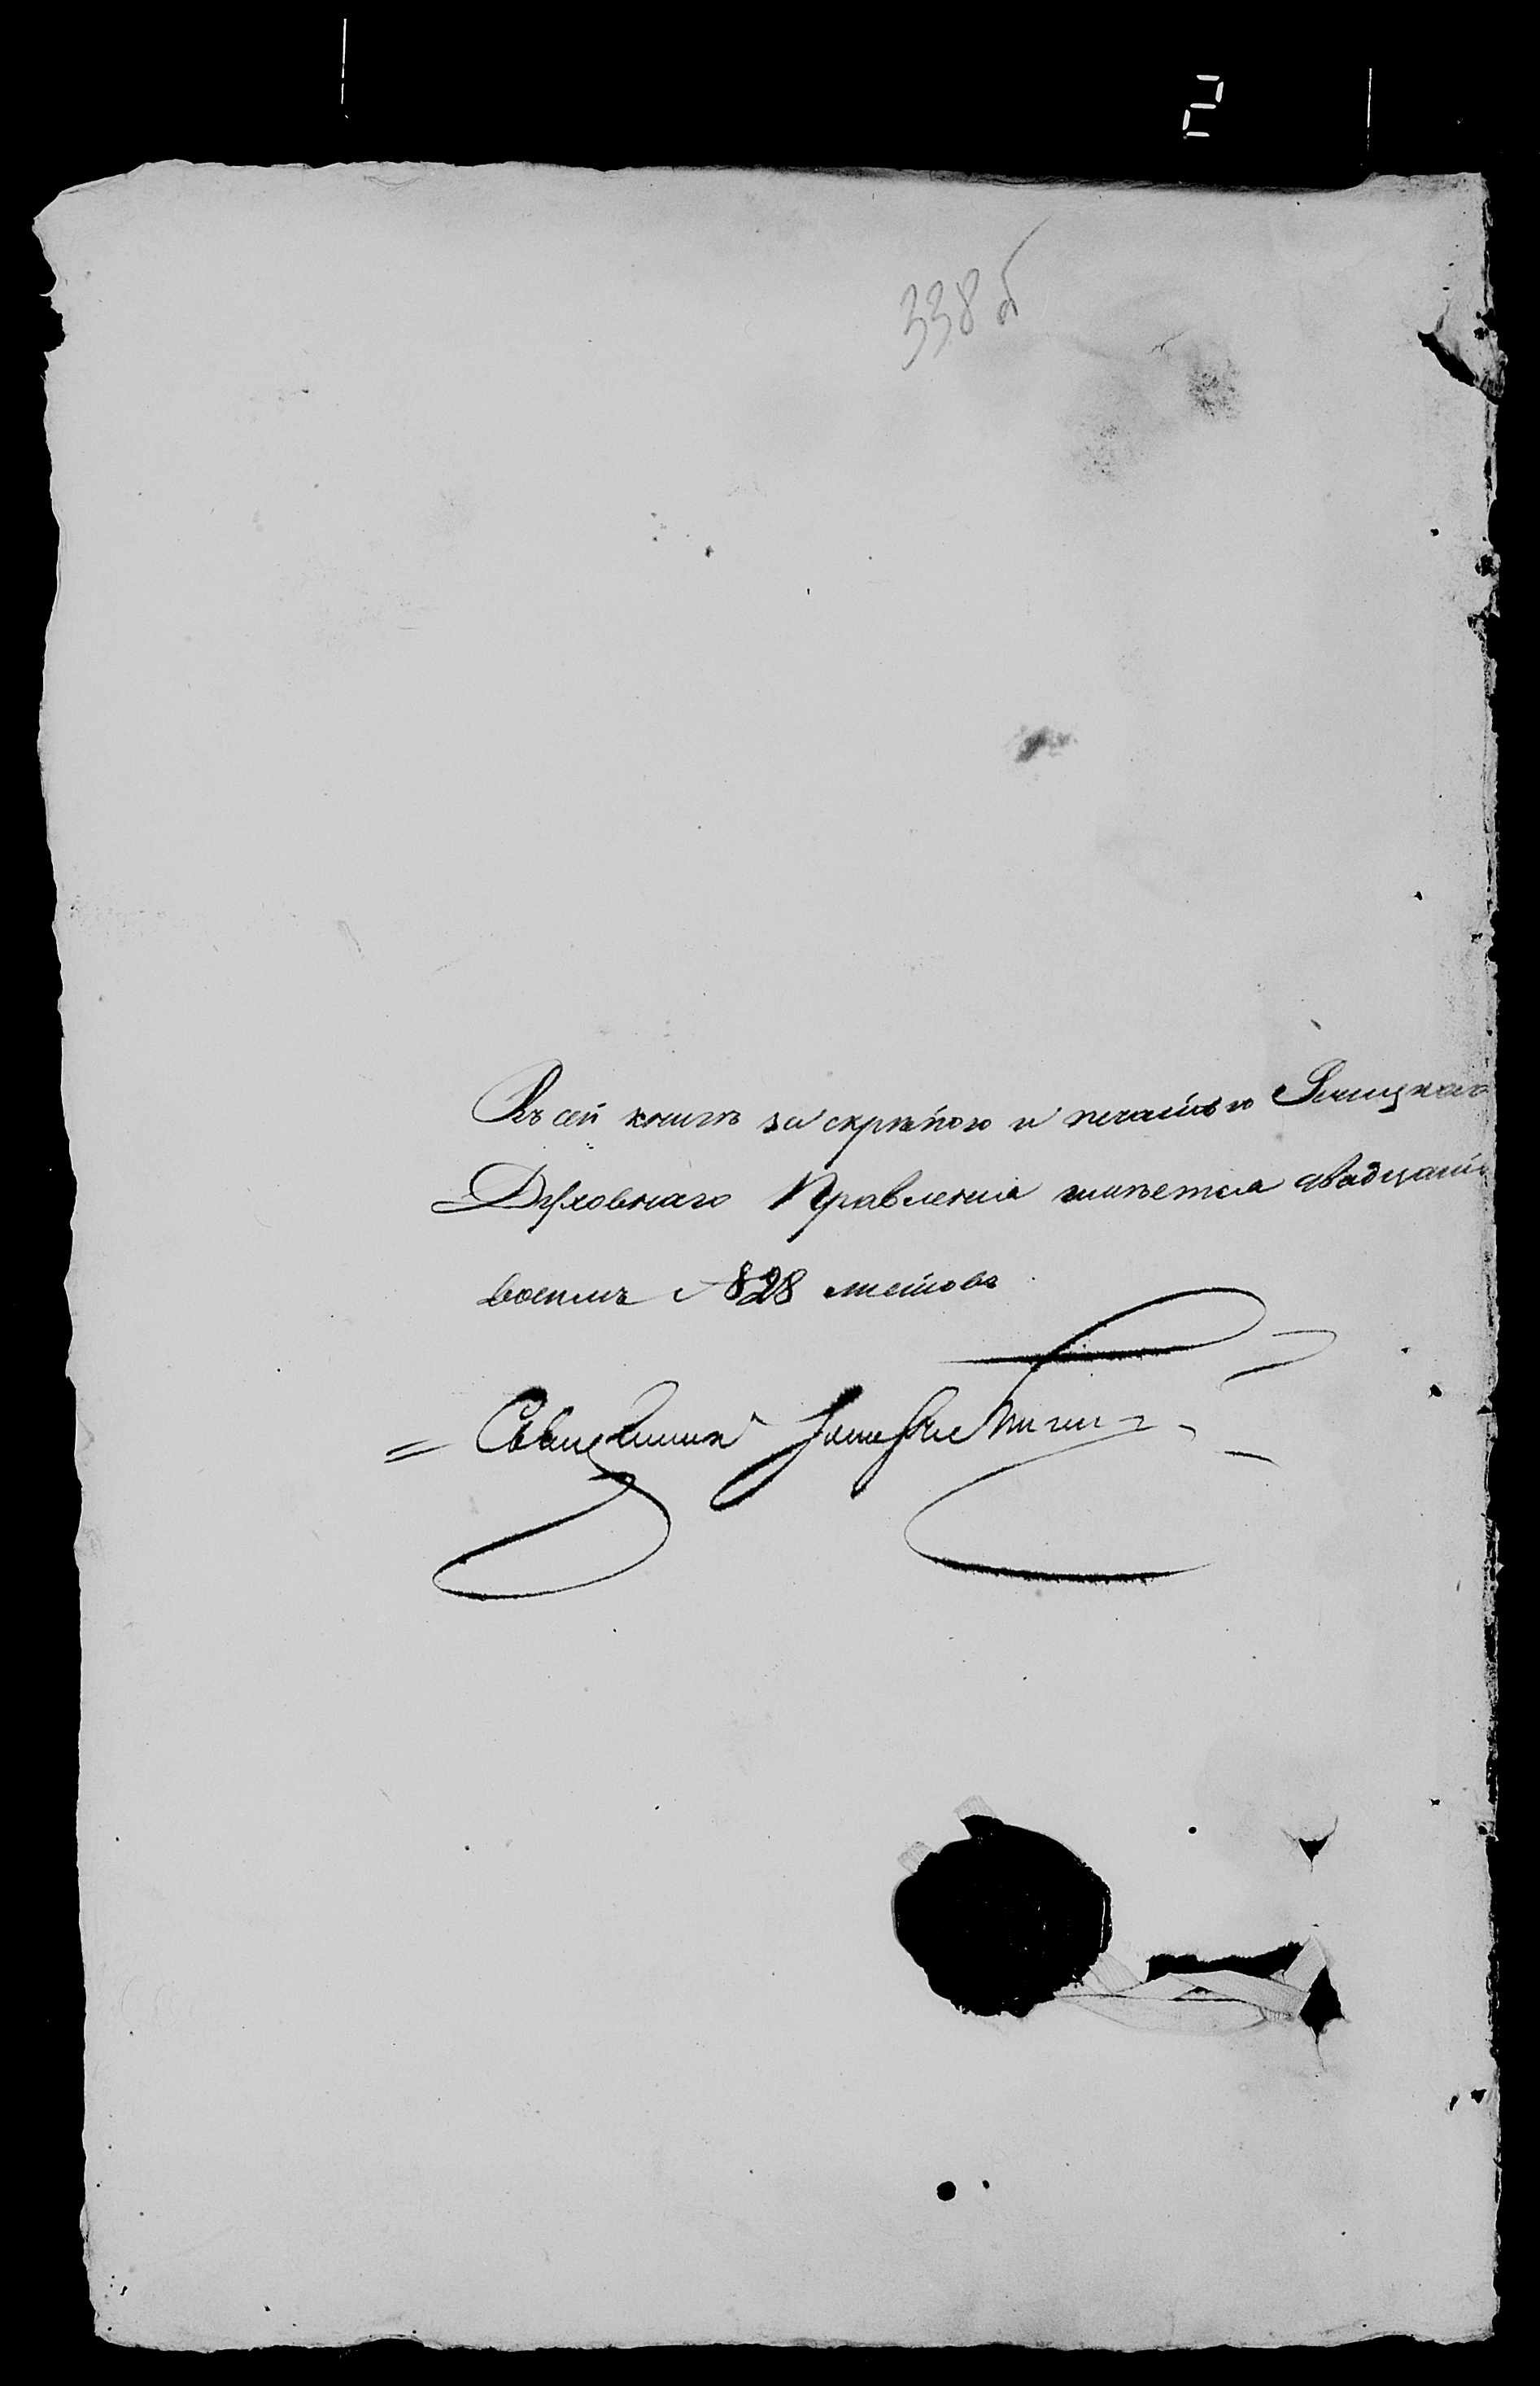 2
338 б
Въ сей книгѣ за скрѣпою и печатью
Духовнаго Правленія имѣется двадцать
восемь №28 листовъ
Священникъ